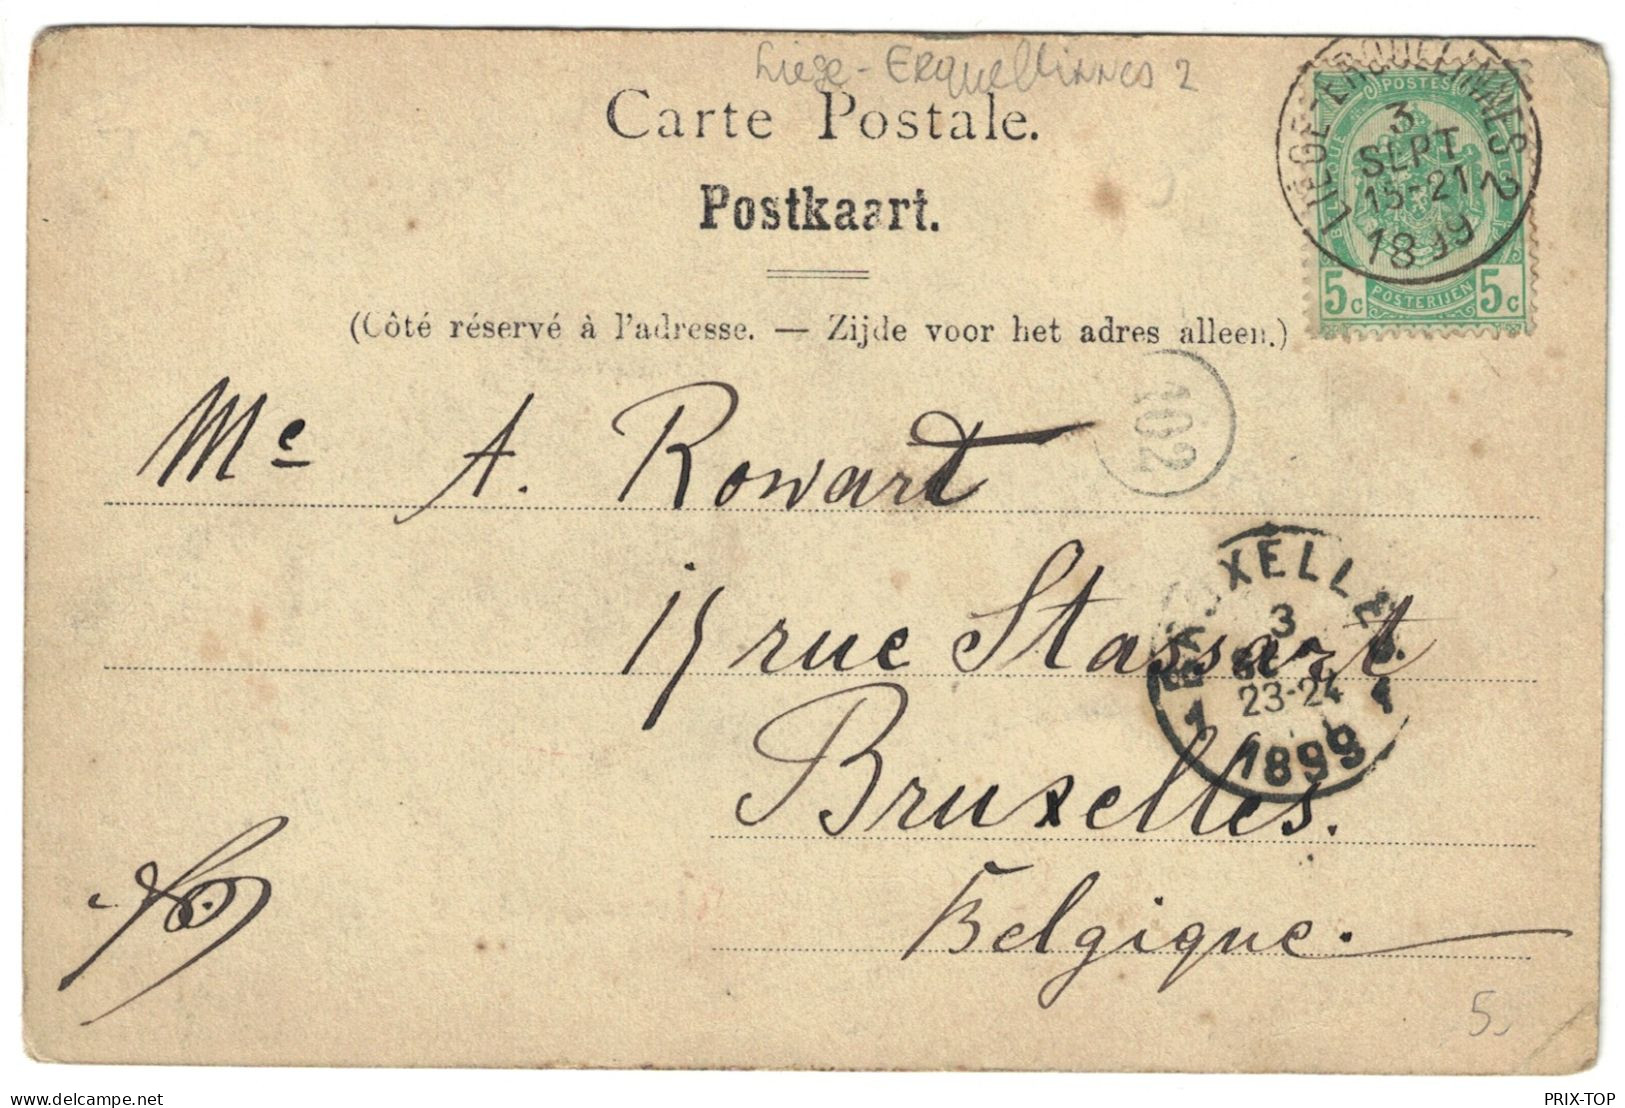 Liege - Erquellinnes 2
Carte Postale.
Postkaart.
(Côté réservé à l'adresse. — Zijde voor het adres alleen.)
LIÈGE-ERQUELINNES 2
3
SEPT
15-21
1899
POSTES
BELGIQUE
5c POSTERIJEN 5c
102
Me A. Rowart
15 rue Stassart
Bruxelles.
Belgique.
BRUXELLES
3
23-24
1 1
1899
5
PRIX-TOP